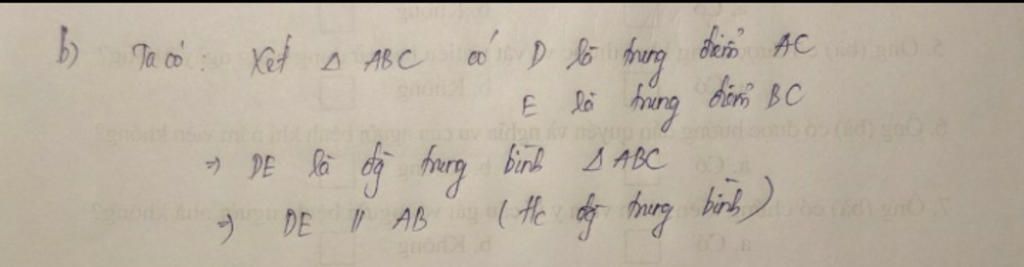 b) Ta có: Xét Δ ABC có D là trung điểm AC
E là trung điểm BC
⇒ DE là đg trung bình Δ ABC
⇒ DE // AB (t/c đg trung bình)